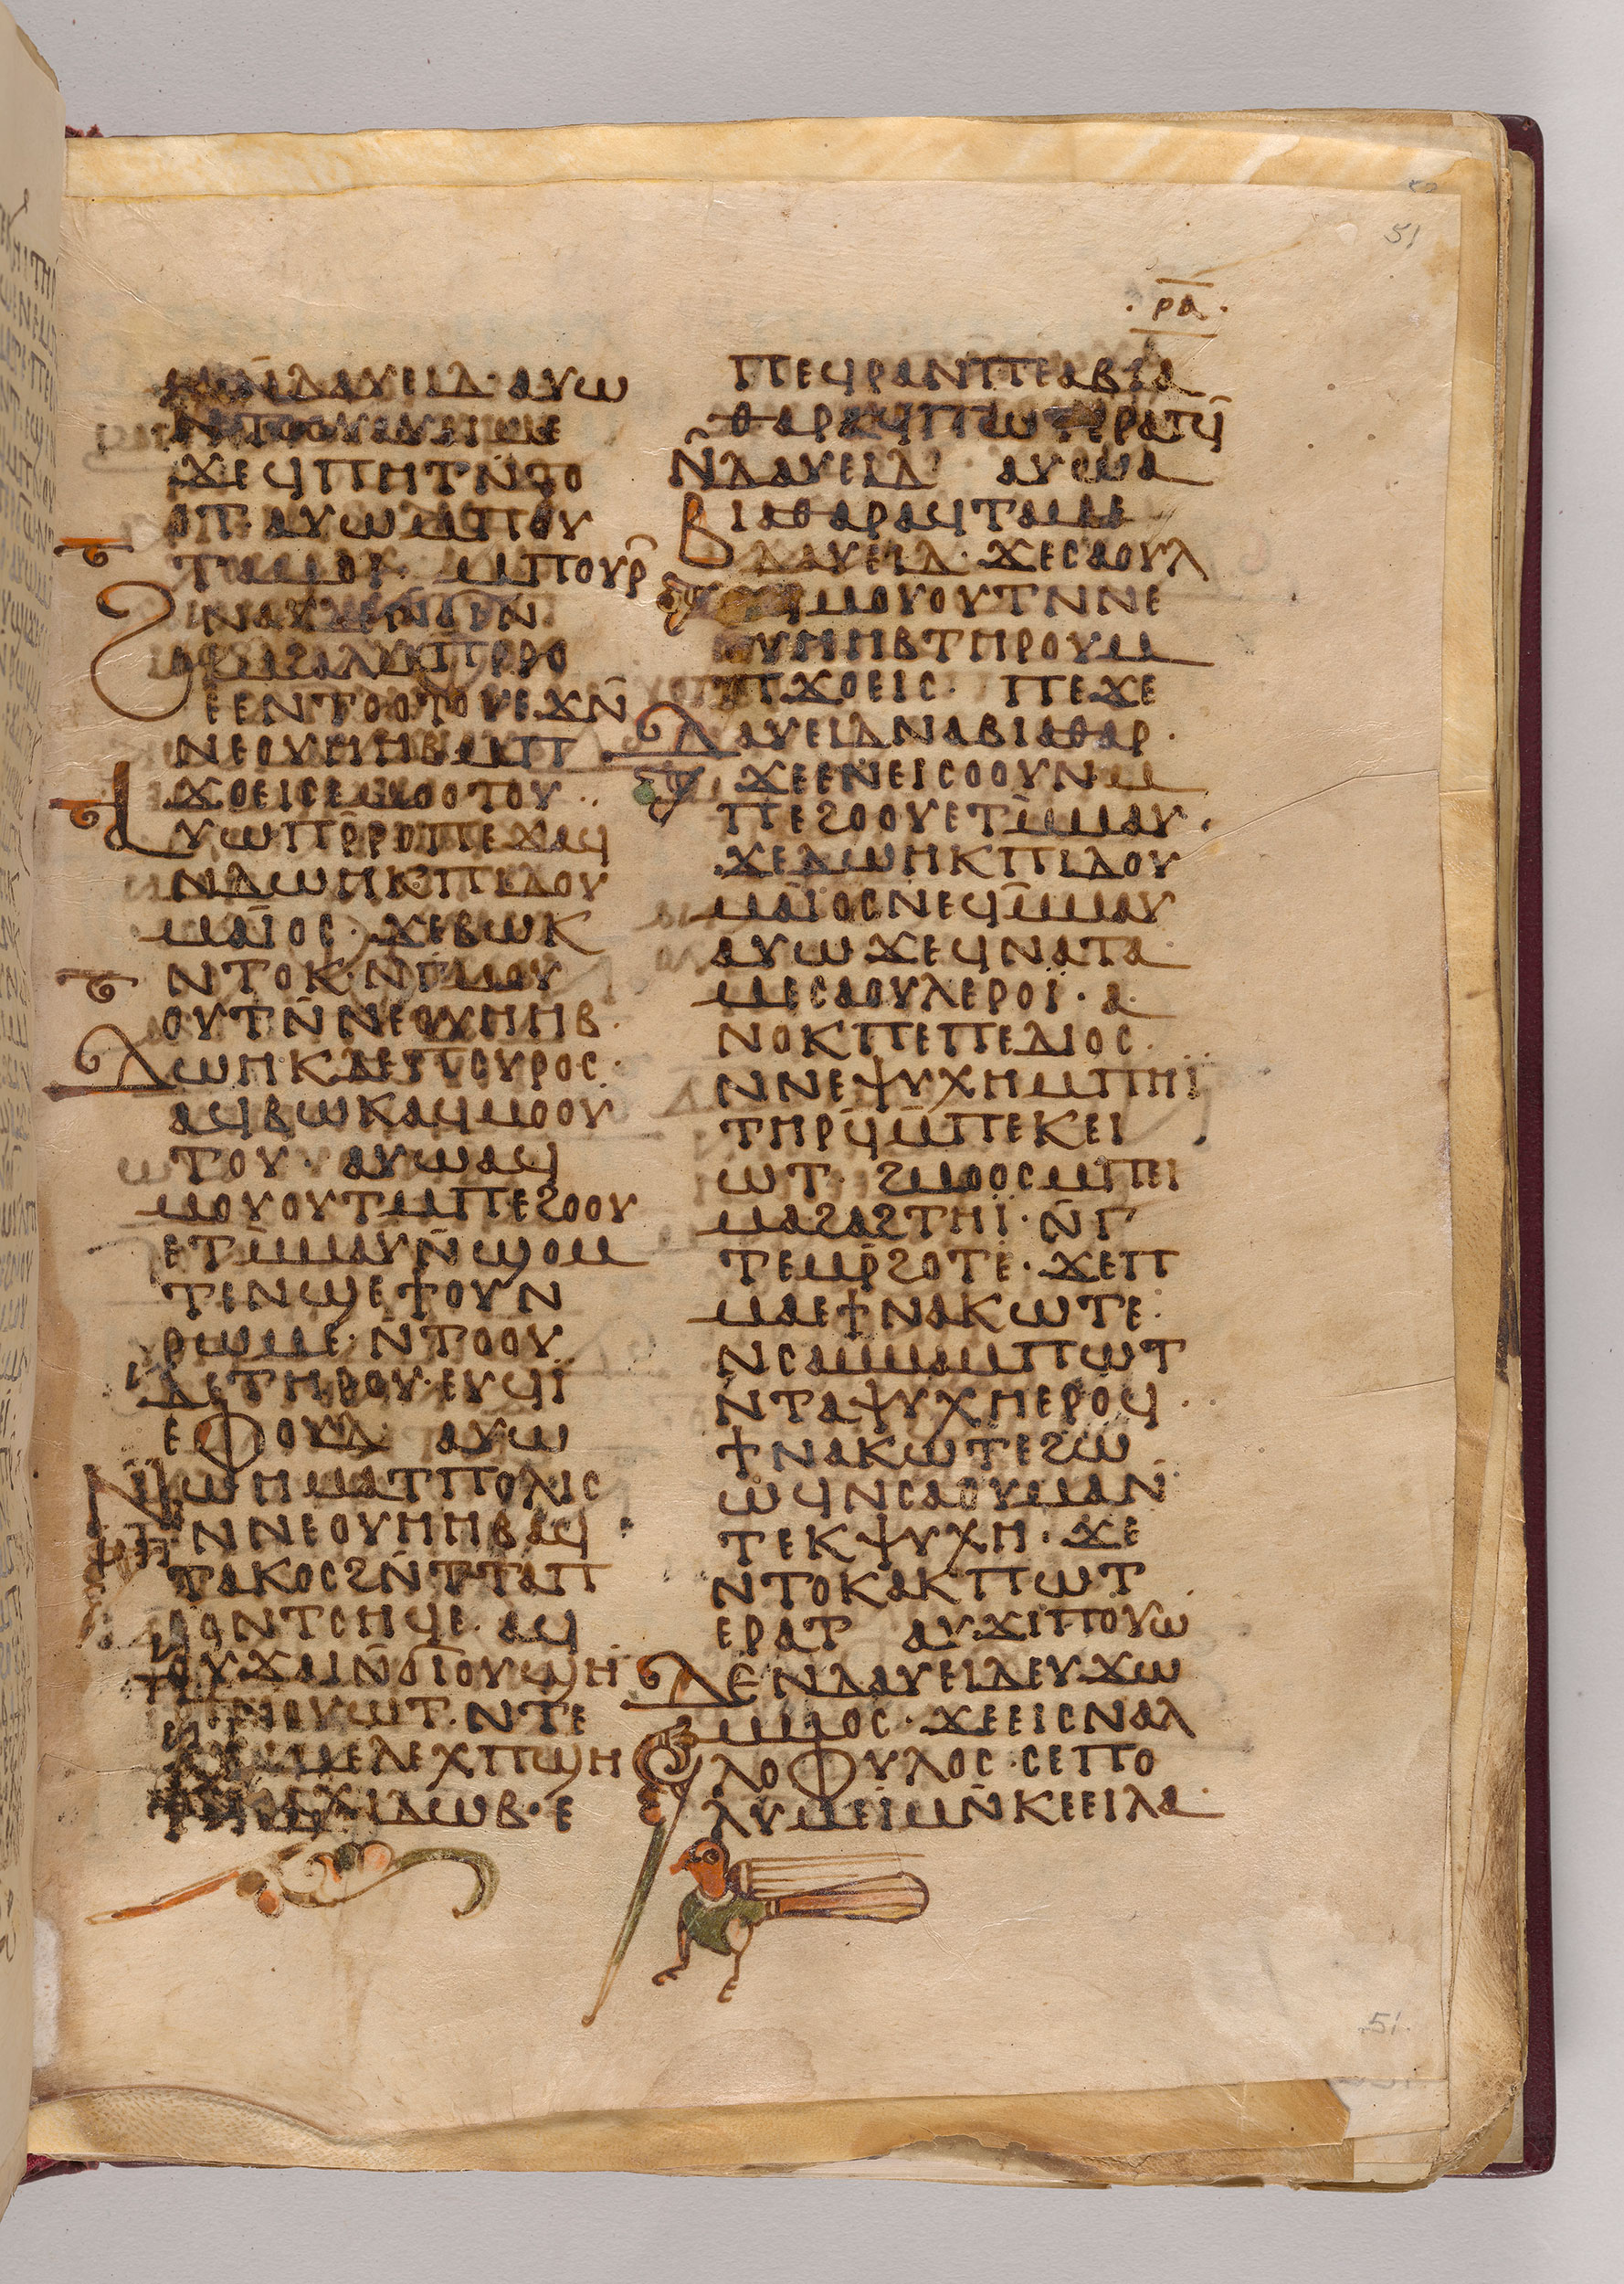 51
ⲣⲁ
ⲇⲁⲩⲉⲓⲇ· ⲁⲩⲱ
ϫⲉϥⲡⲏⲧ ⲛ̄ⲧⲟ
ⲟⲧ· ⲁⲩⲱ ⲙ̄ⲡⲟⲩ
ⲧⲁⲙⲟⲓ· ⲙ̄ⲡⲟⲩⲣ̄
ⲉⲉⲛⲧⲟⲟⲧⲟⲩ ⲉϫⲛ̄
ⲛⲉⲟⲩⲏⲏⲃ ⲙ̄ⲡ
ϫⲟⲉⲓⲥ ⲉⲙⲟⲟⲩⲧⲟⲩ·
ⲁⲩⲱ ⲡⲣ̄ⲣⲟ ⲡⲉϫⲁϥ
ⲛⲇⲱⲏⲕ ⲡⲓⲇⲟⲩ
ⲙⲁⲓ̈ⲟⲥ· ϫⲉⲃⲱⲕ
ⲛⲧⲟⲕ ⲛⲅ̄ⲙⲟⲩ
ⲟⲩⲧ ⲛ̄ⲛⲉⲟⲩⲏⲏⲃ·
ⲇⲱⲏⲕ ⲇⲉ ⲡⲥⲩⲣⲟⲥ·
ⲁϥⲃⲱⲕ ⲁϥⲙⲟⲟⲩ
ⲧⲟⲩ· ⲁⲩⲱ ⲁϥ
ⲙⲟⲩⲟⲩⲧ ⲙⲡⲉϩⲟⲟⲩ
ⲉⲧⲙ̄ⲙⲁⲩ ⲛ̄ϣⲟⲙ
ⲧ ⲛ̄ϣⲉ ϯⲟⲩ ⲛ
ⲣⲱⲙⲉ· ⲛ̄ⲧⲟⲟⲩ
ⲇⲉ ⲧⲏⲣⲟⲩ· ⲉⲩϥⲓ̈
ⲉⲫⲟⲩⲇ ⲁⲩⲱ
ⲛⲟⲙⲃⲁ ⲧⲡⲟⲗⲓⲥ
ⲛⲛⲉⲟⲩⲏⲏⲃ ⲁϥ
ⲧⲁⲕⲟⲥ ϩⲛ̄ ⲧⲧⲁⲡ
ⲣⲟ ⲛⲧⲥⲏϥⲉ. ⲁϥ
ⲟⲩϫⲁⲓ ⲛ̄ϭⲓ ⲟⲩϣⲏ
ⲣⲉ ⲛⲟⲩⲱⲧ. ⲛⲧⲉ
ⲁⲭⲓⲙⲉⲗⲉⲭ ⲡϣⲏ
ⲣⲉ ⲛⲁⲭⲓⲇⲱⲃ· ⲉ
ⲡⲉϥⲣⲁⲛ ⲡⲉ ⲁⲃⲓⲁ
ⲑⲁⲣ ⲁϥⲡⲱⲧ ⲉⲣⲁⲧϥ̄
ⲛ̄ⲇⲁⲩⲉⲓⲇ· ⲁⲩⲱ ⲁ
ⲃⲓⲁⲑⲁⲣ ⲁϥⲧⲁⲙⲉ
ⲇⲁⲩⲉⲓⲇ· ϫⲉ ⲥⲁⲟⲩⲗ
ⲙⲟⲩⲟⲩⲧ ⲛⲛⲉ
ⲟⲩⲏⲏⲃ ⲧⲏⲣⲟⲩ ⲙ
ⲡϫⲟⲉⲓⲥ· ⲡⲉϫⲉ
ⲇⲁⲩⲉⲓⲇ ⲛⲁⲃⲓⲁⲑⲁⲣ·
ϫⲉ ⲉⲛⲉⲓⲥⲟⲟⲩⲛ ⲙ
ⲡⲉϩⲟⲟⲩ ⲉⲧⲙ̄ⲙⲁⲩ·
ϫⲉ ⲇⲱⲏⲕ ⲡⲓⲇⲟⲩ
ⲙⲁⲓ̈ⲟⲥ ⲛⲉϥⲙ̄ⲙⲁⲩ
ⲁⲩⲱ ϫⲉ ϥⲛⲁⲧⲁ
ⲙⲉ ⲥⲁⲟⲩⲗ ⲉⲣⲟⲓ̈· ⲁ
ⲛⲟⲕ ⲡⲉ ⲡⲉⲇⲓⲟⲥ·
ⲛⲛⲉⲯⲩⲭⲏ ⲙⲡⲏⲓ̈
ⲧⲏⲣϥ̄ ⲙ̄ⲡⲉⲕⲉⲓ
ⲱⲧ· ϩⲙⲟⲟⲥ ⲙⲡⲉⲓ
ⲙⲁ ϩⲁϩⲧⲏⲓ̈· ⲛ̄ⲅ
ⲧⲉⲙⲣ̄ϩⲟⲧⲉ· ϫⲉ ⲡ
ⲙⲁ ⲉϯⲛⲁⲕⲱⲧⲉ
ⲛⲥⲁ ⲙⲙⲁⲙⲡⲱⲧ
ⲛⲧⲁⲯⲩⲭⲏ ⲉⲣⲟϥ·
ϯⲛⲁⲕⲱⲧⲉ ϩⲱ
ⲱϥ ⲛⲥⲁ ⲟⲩⲙⲁ ⲛ̄
ⲧⲉⲕⲯⲩⲭⲏ· ϫⲉ
ⲛⲧⲟⲕ ⲁⲕⲡⲱⲧ
ⲉⲣⲁⲧ ⲁⲩϫⲓ ⲡⲟⲩⲱ
ⲇⲉ ⲛⲇⲁⲩⲉⲓⲇ ⲉⲩϫⲱ
ⲙⲙⲟⲥ· ϫⲉ ⲉⲓⲥ ⲛⲁⲗ
ⲗⲟⲫⲩⲗⲟⲥ· ⲥⲉⲡⲟ
ⲗⲩⲙⲉⲓ ⲙⲛ̄ ⲕⲉⲉⲓⲗⲁ·
51